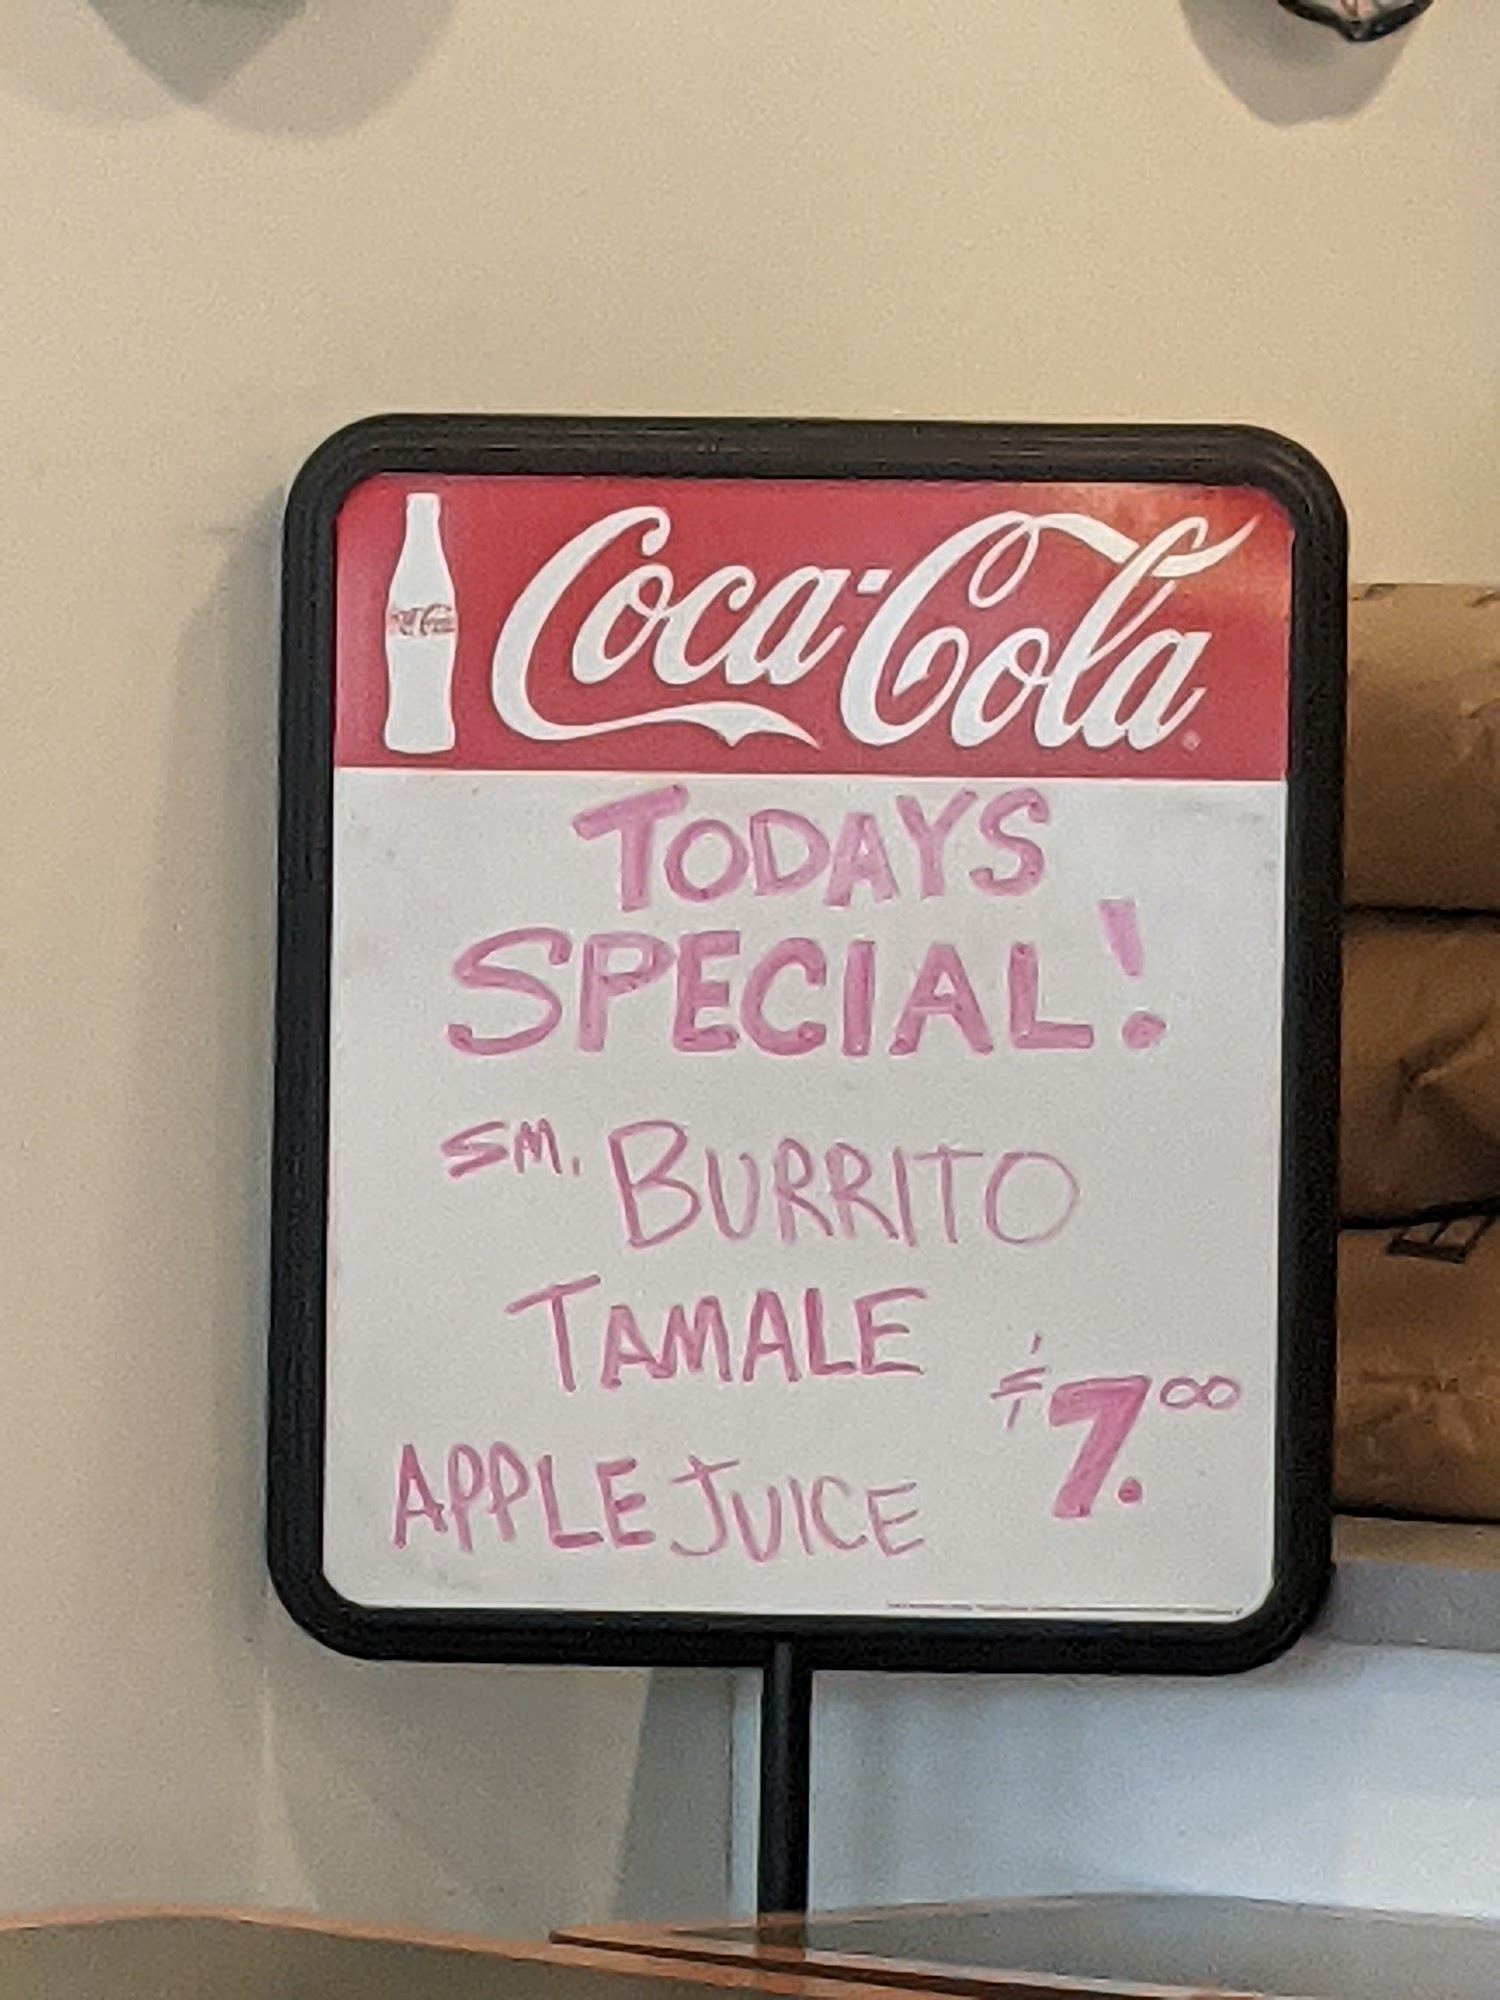 Coca-Cola
TODAYS
SPECIAL!
SM. BURRITO
TAMALE
$7.00
APPLE JUICE